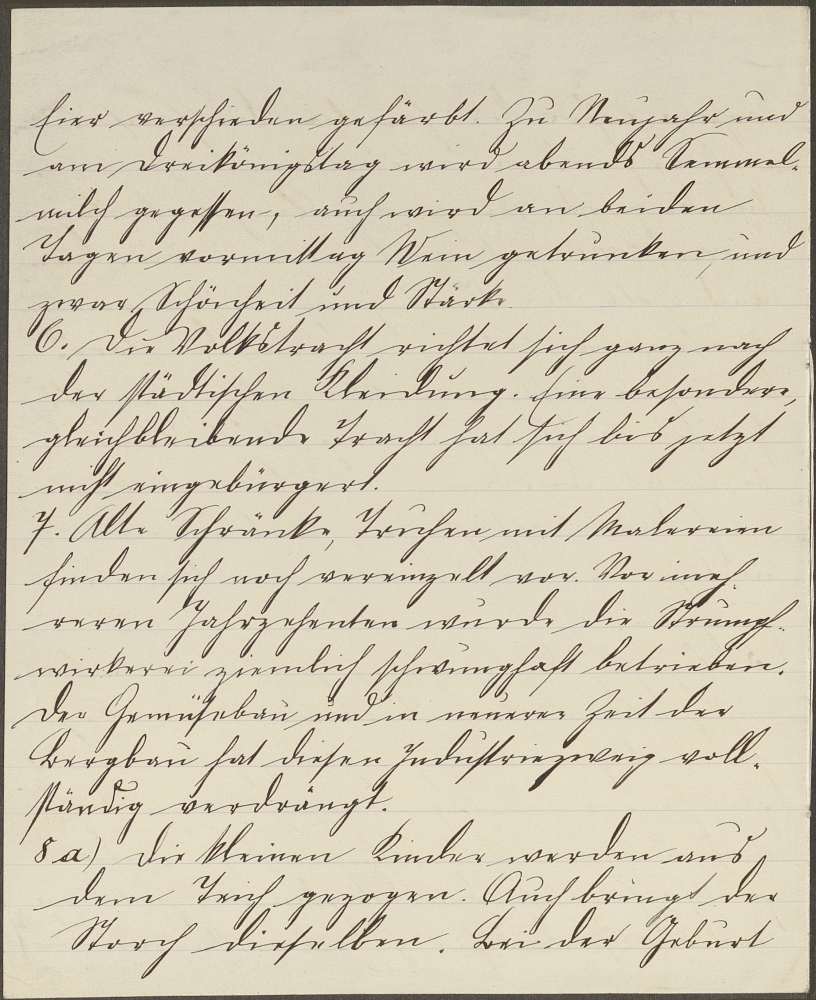 Eier verschieden gefärbt. Zu Neujahr und
am Dreikönigstag wird abends Semmel-
milch gegessen, auch wird an beiden
Tagen vormittag Wein getrunken, und
zwar Schönheit und Stärke.
6. Die Volkstracht richtet sich ganz nach
der städtischen Kleidung. Eine besondere,
gleichbleibende Tracht hat sich bis jetzt
nicht eingebürgert.
7. Alte Schränke, Truhen mit Malereien
finden sich noch vereinzelt vor. Vor meh-
reren Jahrzehnten wurde die Strumpf-
wirkerei ziemlich schwunghaft betrieben.
Der Gemüsebau und in neuerer Zeit der
Bergbau hat diesen Industriezweig voll-
ständig verdrängt.
8 a) Die kleinen Kinder werden aus
dem Teich gezogen. Auch bringt der
Storch dieselben. Bei der Geburt